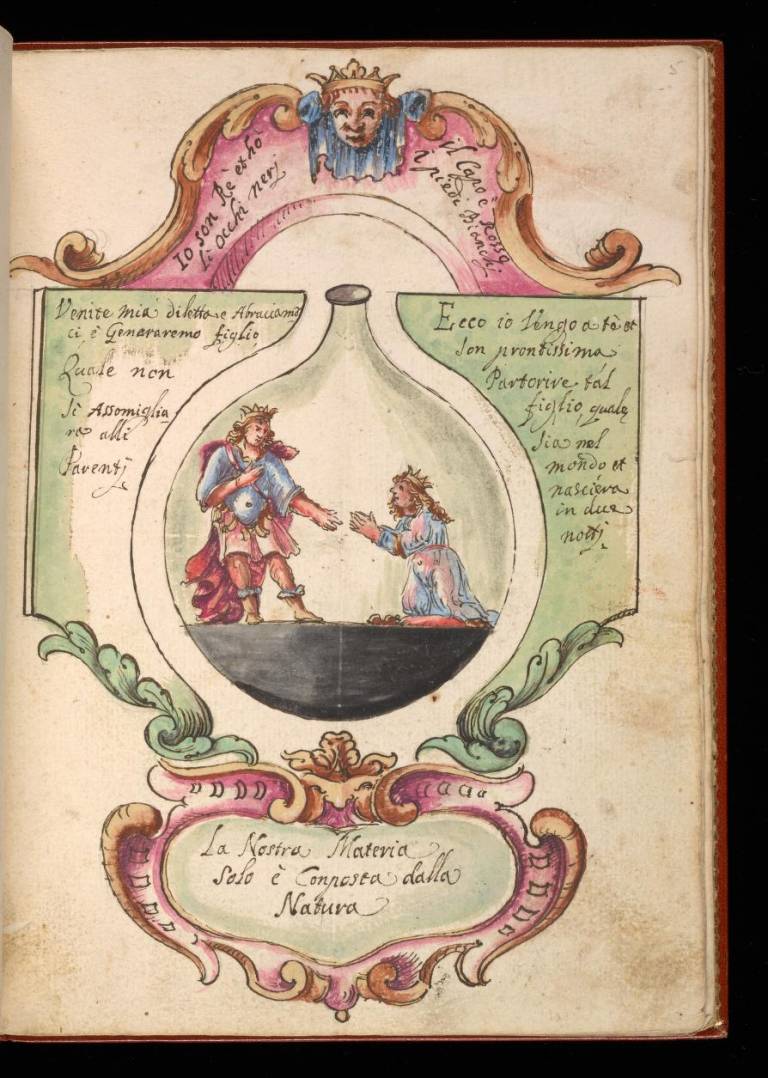 5
Io son Rè et hò
li occhi neri
il Capo è Rosso
i piedi Bianchi
Venite mia diletta e Abraciamo
ci è Generaremo figlio
Quale non
Si Assomiglia
re alli
Parentj
Ecco io Vengo a tè et
son prontissima
Partorire tal
figlio, quale
sia nel
mondo et
nasciera
in due
nottj
La Nostra Materia
Solo è Conposta dalla
Natura